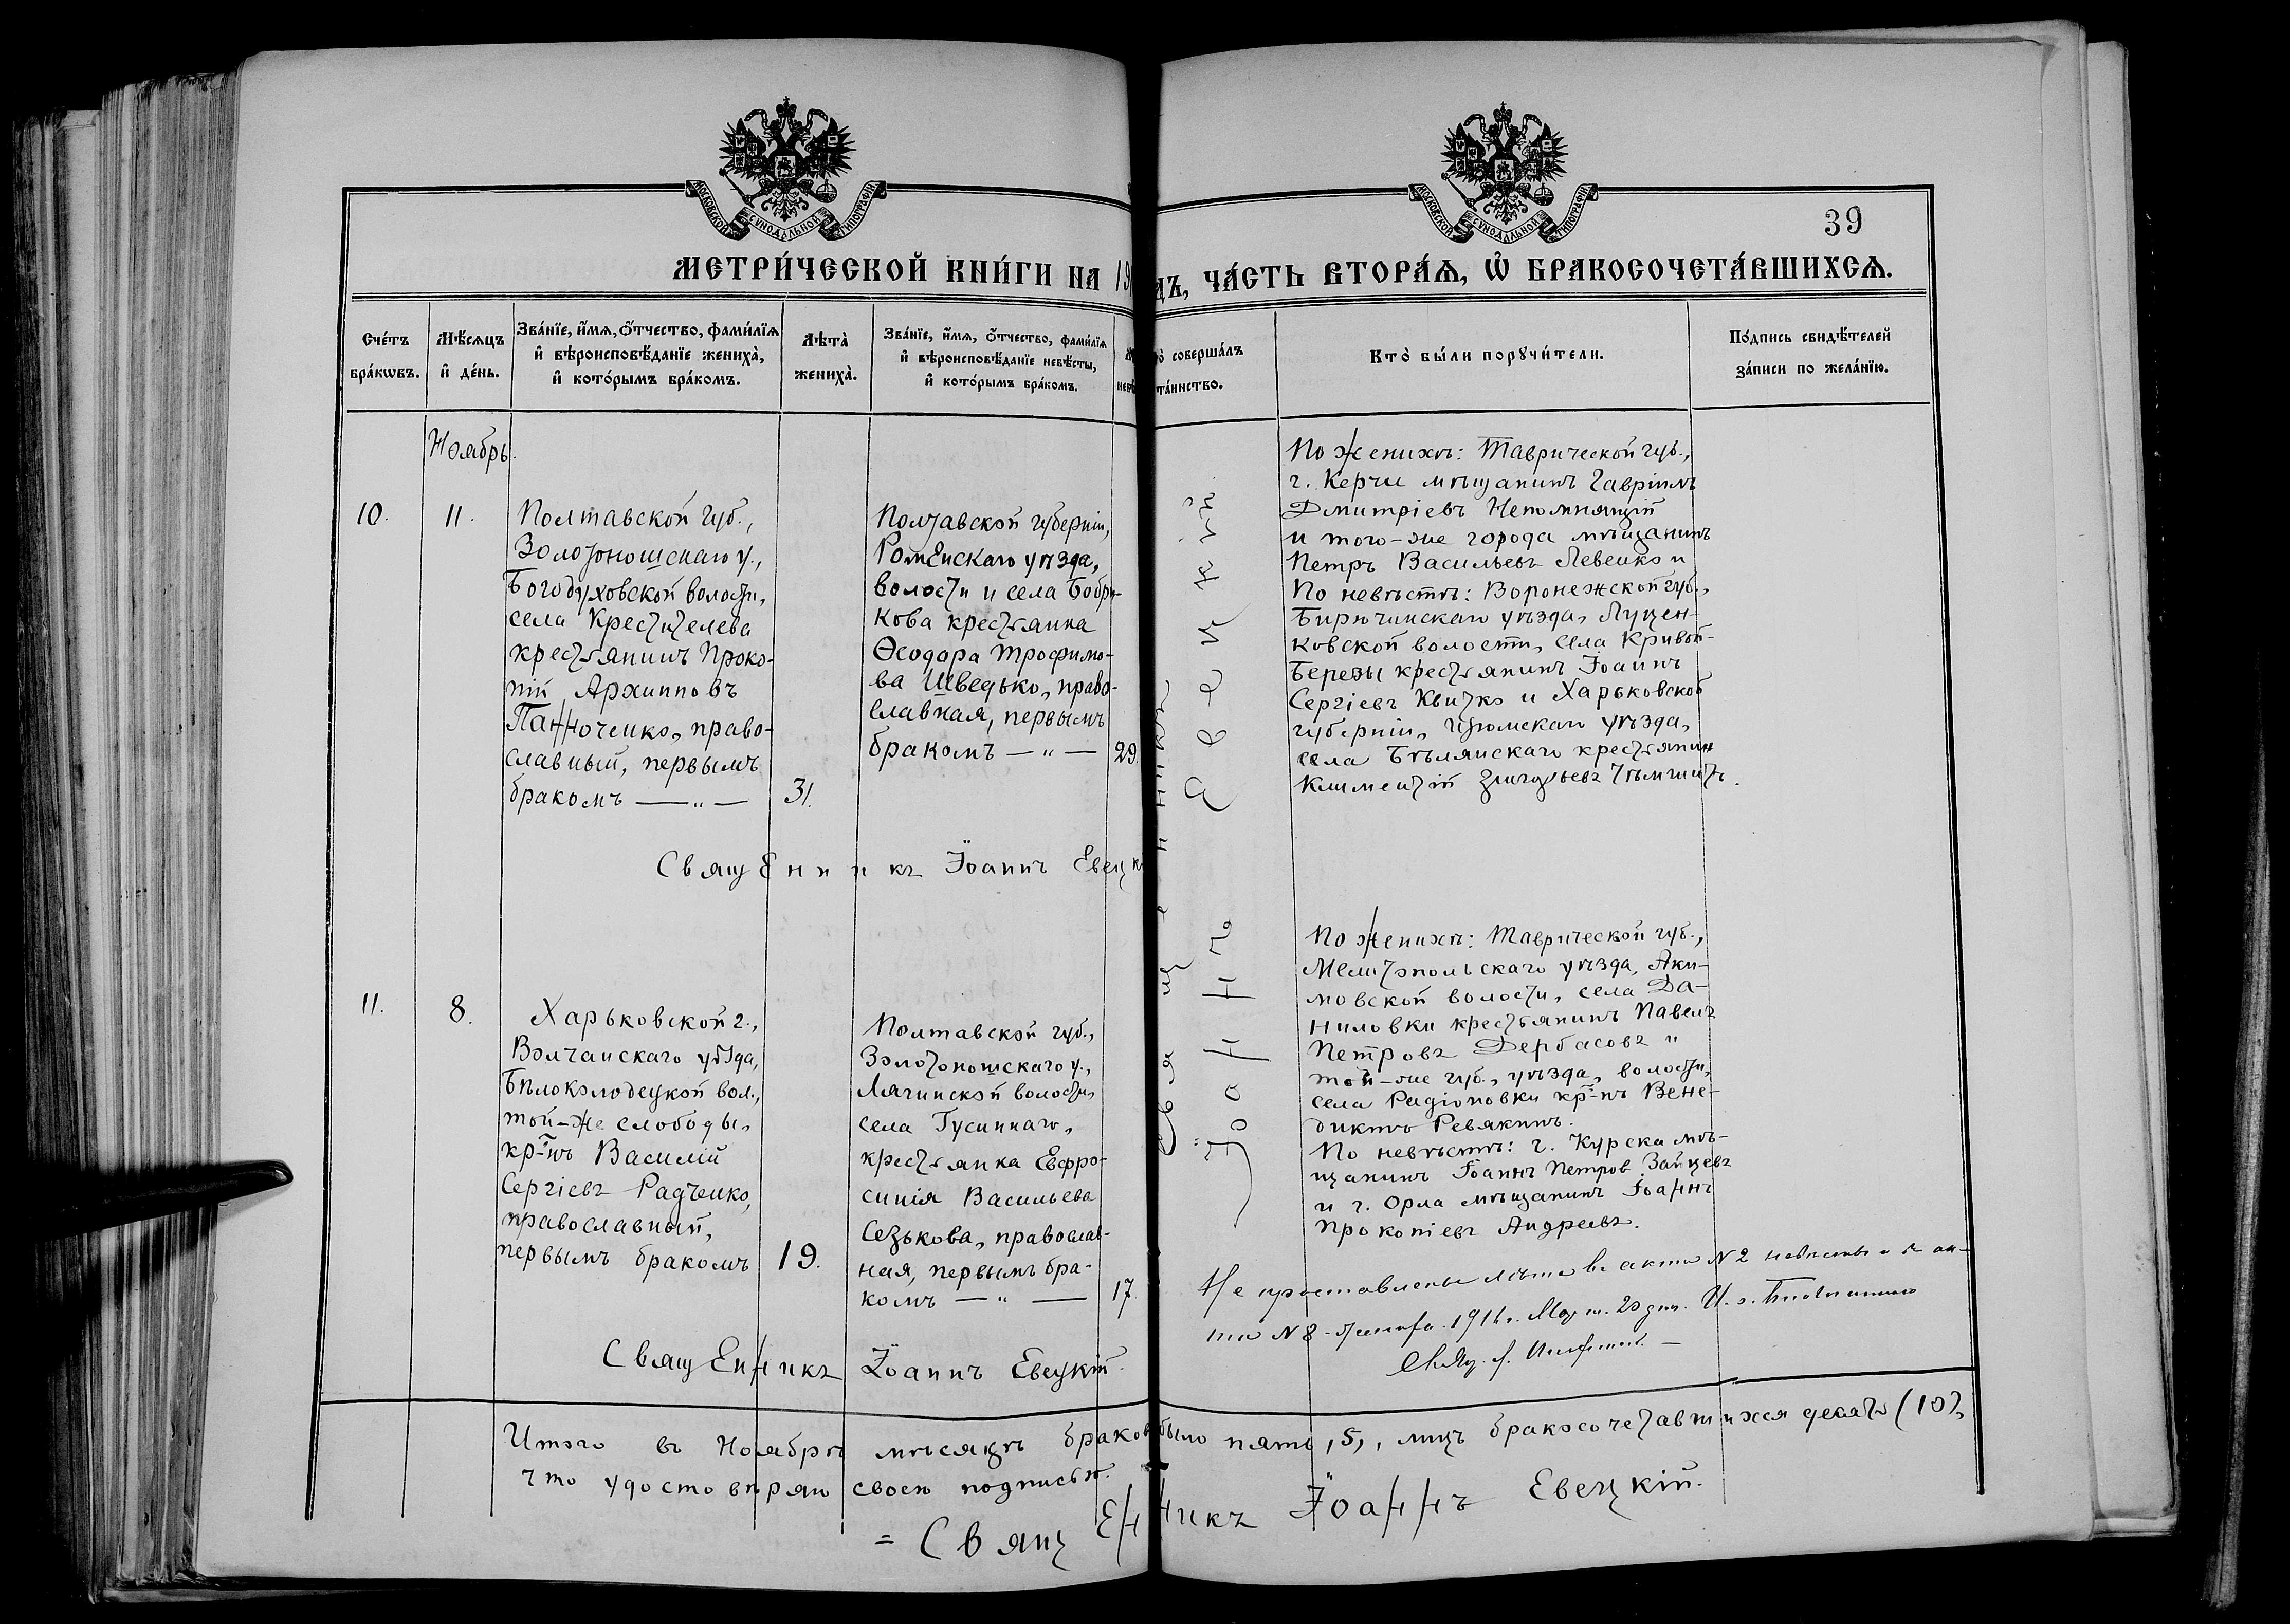 МОСКОВСКОЙ СУНОДАЛЬНОЙ ТИПОГРАФІИ
МОСКОВСКОЙ СУНОДАЛЬНОЙ ТИПОГРАФІИ
39
МЕТРИ́ЧЕСКОЙ КНИ́ГИ НА 19
ДЪ, ЧА́СТЬ ВТОРА́Ѧ, Ѽ БРАКОСОЧЕТА́ВШИХСѦ.
Сче́тъ
бра́кѡвъ.
Мѣ́сѧцъ
и҆ де́нь.
Зва́нїе, и҆́мѧ, ѻ҆́тчество, фами́лїѧ
и҆ вѣроисповѣ́данїе жениха̀,
и҆ кото́рымъ бра́комъ.
Лѣта̀
жениха̀.
Зва́нїе, и҆́мѧ, ѻ҆́тчество, фами́лїѧ
и҆ вѣроисповѣ́данїе невѣ́сты,
и҆ кото́рымъ бра́комъ.
соверша́лъ
та́инство.
Кто̀ бы́ли порꙋчи́тели.
По́дпись свидѣ́телей
за́писи по жела́нїю.
Ноябрь.
10.
11.
Полтавской губ.,
Золотоношскаго у.,
Богодуховской волости,
села Крестителева
крестьянинъ Проко-
пій Архиповъ
Панноченко, право-
славный, первымъ
бракомъ — „ —
31.
Полтавской губерніи,
Роменскаго уѣзда,
волости и села Бобри-
кова крестьянка
Ѳеодора Трофимо-
ва Шведько, право-
славная, первымъ
бракомъ — „ —
29.
Священникъ Іоаннъ Евецк
По женихѣ: Таврической губ.,
г. Керчи мѣщанинъ Гавріилъ
Дмитріевъ Непомнящій
и того-же города мѣщанинъ
Петръ Васильевъ Левенко и
По невѣстѣ: Воронежской губ.,
Бирючинскаго уѣзда, Луцен-
ковской волости, села Кривой-
Березы крестьянинъ Іоаннъ
Сергіевъ Квитко и Харьковской
губерніи, Изюмскаго уѣзда,
села Бѣлянскаго крестьянин
Климентій
11.
8.
Харьковской г.,
Волчанскаго уѣзда,
Бѣлоколодецкой вол.,
той-же слободы,
кр-нъ Василій
Сергіевъ Радченко,
православный,
первымъ бракомъ
19.
Полтавской губ.,
Золотоношскаго у.,
Лячинской волости,
села Гусиннаго,
крестьянка Евфро-
синія Васильева
Сезькова, православ-
ная, первымъ бра-
комъ — „ —
17.
Священникъ Іоаннъ Евецкій.
Священникъ
Іоаннъ Евецкій.
По женихѣ: Таврической губ.,
Мелитопольскаго уѣзда, Аки-
мовской волости, села Да-
ниловки крестьянинъ Павелъ
Петровъ Дербасовъ и
той-же губ., уѣзда, волости,
села Радіоновки кр-нъ Вене-
диктъ Ревякинъ.
По невѣстѣ: г. Курска мѣ-
щанинъ Іоаннъ Петров Зайцевъ
и г. Орла мѣщанинъ Іоаннъ
Прокопіевъ Андреевъ.
Не проставлены лѣта въ актѣ N 2 невѣсты и въ ак-
тѣ N 8 1916 г. 20 дня. И. о. Благочиннаго
Свящ.
Итого въ Ноябрѣ мѣсяцѣ браков было пять, 5, лицъ бракосочетавшихся десять (10),
что удостовѣряю своею подписью.
= Священникъ Іоаннъ Евецкій.